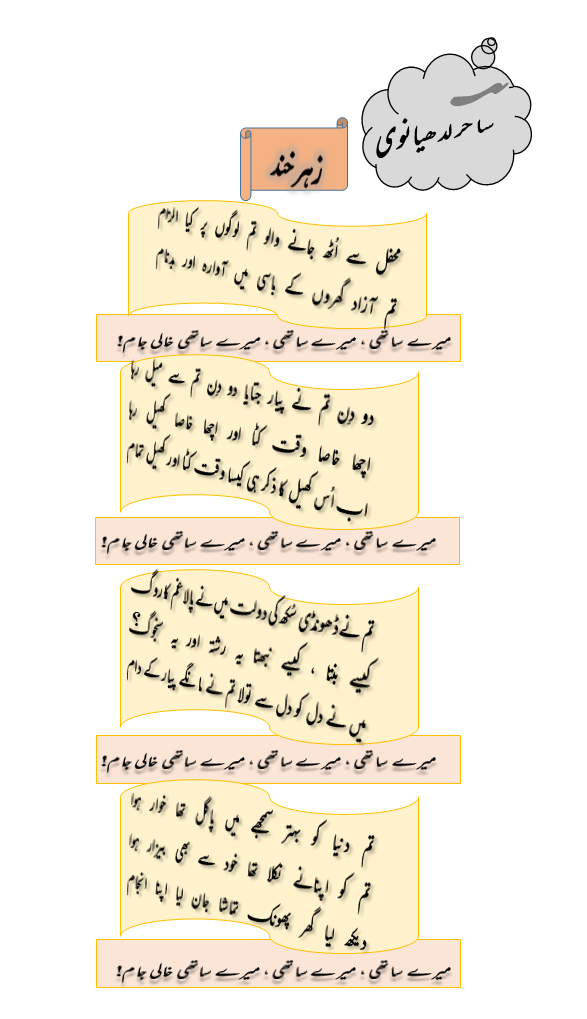 ساحر لدھیانوی
زہر خند
محفل سے اُٹھ جانے والو تم لوگوں پر کیا الزام
تم آزاد گھروں کے باسی میں آوارہ اور بدنام
میرے ساتھی ، میرے ساتھی ، میرے ساتھی خالی جام!
دو دِن تم نے پیار جتایا دو دِن تم سے میل رہا
اچھا خاصا وقت کٹا اور اچھا خاصا کھیل رہا
اب اُس کھیل کا ذکر ہی کیسا وقت کٹا اور کھیل تمام
میرے ساتھی ، میرے ساتھی ، میرے ساتھی خالی جام!
تم نے ڈھونڈی سُکھ کی دولت میں نے پالا غم کا روگ
کیسے بنتا ، کیسے نبھتا یہ رشتہ اور یہ سنجوگ؟
میں نے دل کو دل سے تولا تم نے مانگے پیار کے دام
میرے ساتھی ، میرے ساتھی ، میرے ساتھی خالی جام!
تم دنیا کو بہتر سمجھے میں پاگل تھا خوار ہوا
تم کو اپنانے نکلا تھا خود سے بھی بیزار ہوا
دیکھ لیا گھر پھونک تماشا جان لیا اپنا انجام
میرے ساتھی ، میرے ساتھی ، میرے ساتھی خالی جام!